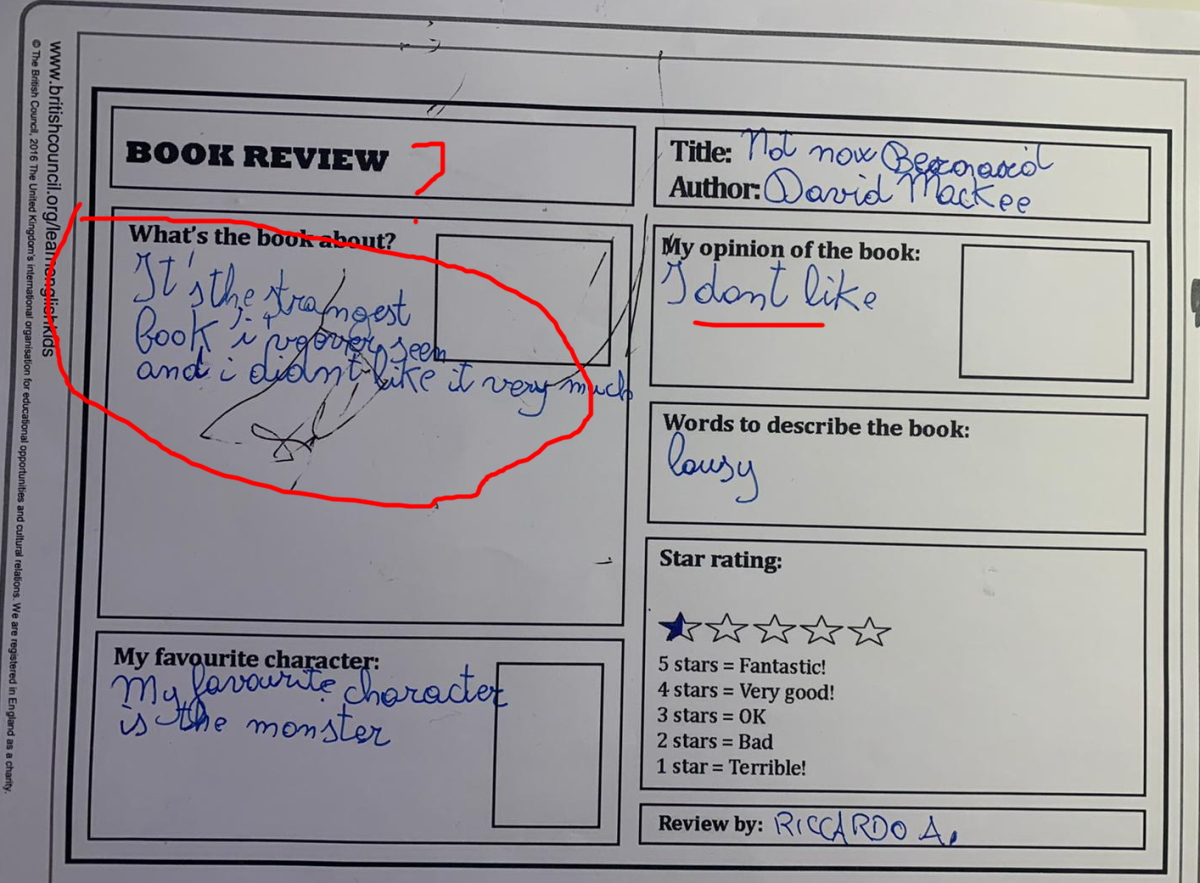 www.britishcouncil.org/learnenglishkids
© The British Council, 2016 The United Kingdom's international organisation for educational opportunities and cultural relations. We are registered in England as a charity.
BOOK REVIEW ?
What's the book about?
It's the strangest
book i've ever seen
and i didnt like it very much
My favourite character:
My favourite character
is the monster
Title: Not now Bernard
Author: David Mackee
My opinion of the book:
I dont like
Words to describe the book:
lousy
Star rating:
5 stars = Fantastic!
4 stars = Very good!
3 stars = OK
2 stars = Bad
1 star = Terrible!
Review by: RICCARDO A.